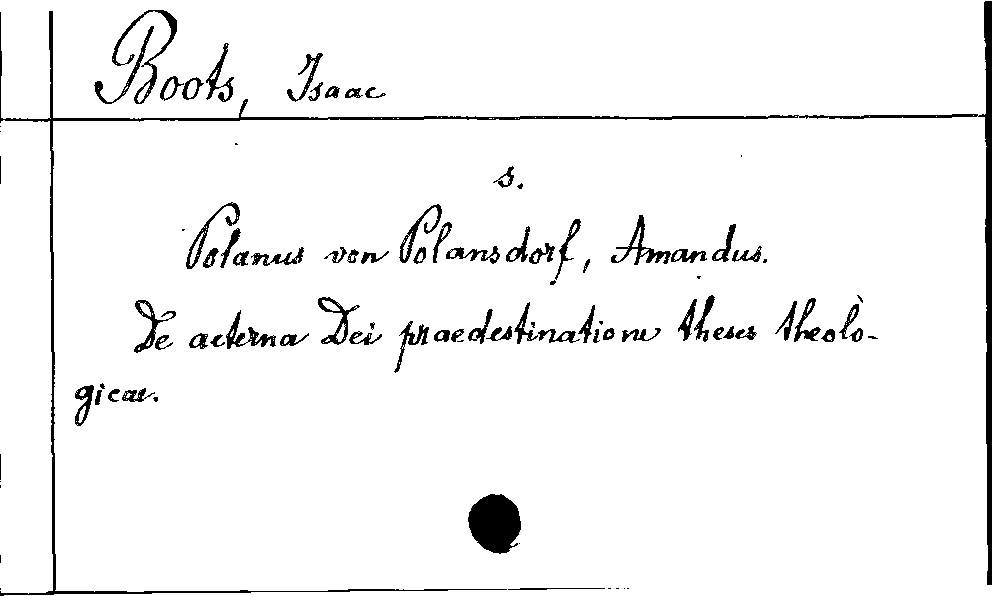 Boots, Isaac
s.
Polanus von Polansdorf, Amandus.
De aeterna Dei praedestinatione theses theolo-
gicae.